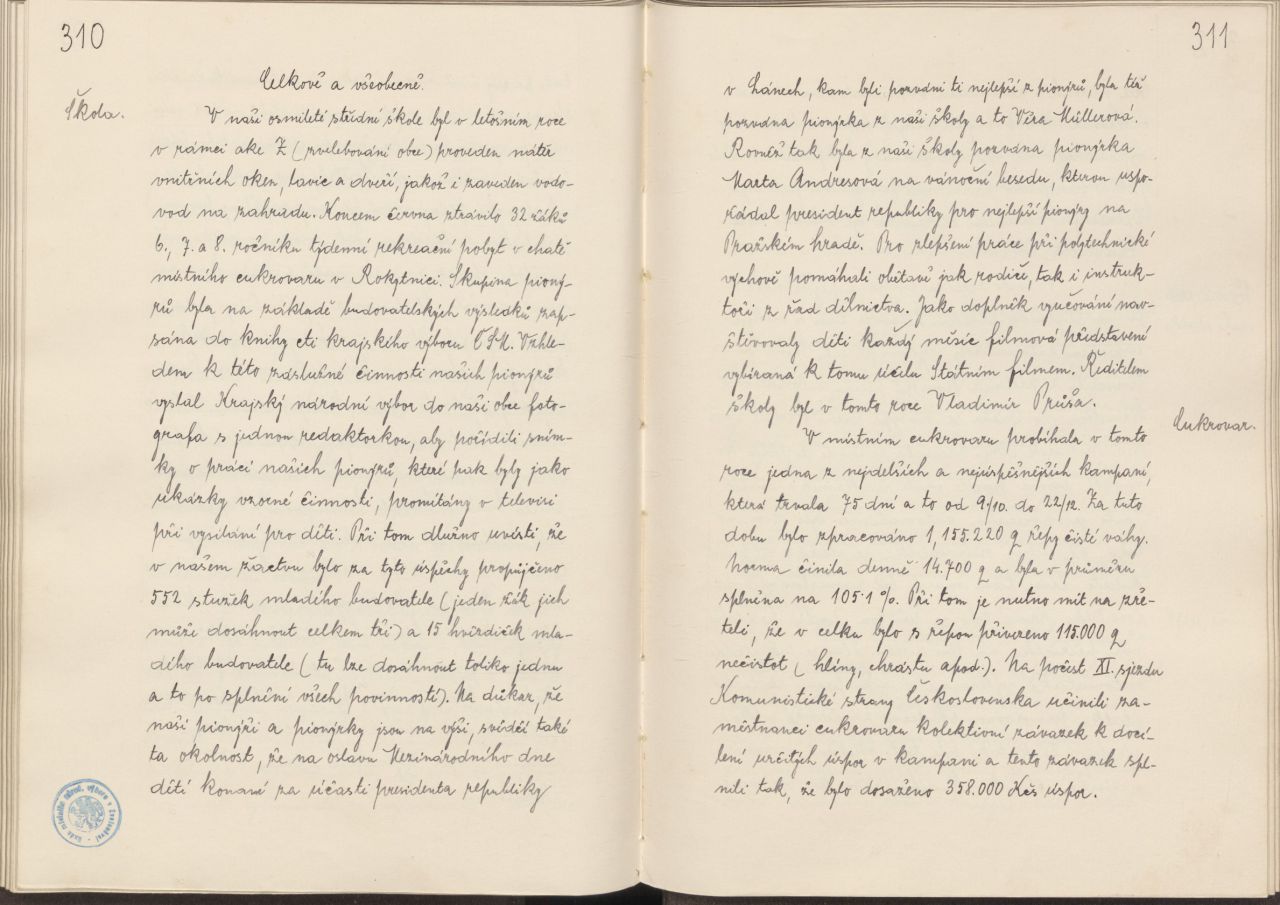 310
Celkově a všeobecně.
Škola.
V naší osmileté střední škole byl v letošním roce
v rámci akc Z (zvelebování obce) proveden nátěr
vnitřních oken, lavic a dveří, jakož i zaveden vodo-
vod na zahradu. Koncem června ztrávilo 32 žáků
6., 7. a 8. ročníku týdenní rekreační pobyt v chatě
místního cukrovaru v Rokytnici. Skupina pioný-
rů byla na základě budovatelských výsledků zap-
sána do knihy cti krajského výboru ČSM. Vzhle-
dem k této záslužné činnosti našich pionýrů
vyslal Krajský národní výbor do naší obce foto-
grafa s jednou redaktorkou, aby pořídili sním-
ky o práci našich pionýrů, které pak byly jako
ukázky vzorné činnosti, promítány v televisi
při vysílání pro děti. Při tom dlužno uvésti, že
v našem žactvu bylo za tyto úspěchy propůjčeno
552 stužek mladého budovatele (jeden žák jich
může dosáhnout celkem tři) a 15 hvězdiček mla-
dého budovatele (tu lze dosáhnout toliko jednu
a to po splnění všech povinností). Na důkaz, že
naši pionýři a pionýrky jsou na výši, svědčí také
ta okolnost, že na oslavu Mezinárodního dne
dětí konané za účasti presidenta republiky
311
v Lánech, kam byli pozváni ti nejlepší z pionýrů, byla též
pozvána pionýrka z naší školy a to Věra Müllerová.
Rovněž tak byla z naší školy pozvána pionýrka
Marta Andresová na vánoční besedu, kterou uspo-
řádal president republiky pro nejlepší pionýry na
Pražském hradě. Pro zlepšení práce při polytechnické
výchově pomáhali obětavě jak rodiče, tak i instruk-
toři z řad dělnictva. Jako doplněk vyučování nav-
štěvovaly děti každý měsíc filmová představení
vybíraná k tomu účelu Státním filmem. Ředitelem
školy byl v tomto roce Vladimír Průša.
Cukrovar.
V místním cukrovaru probíhala v tomto
roce jedna z nejdelších a nejúspěšnějších kampaní,
která trvala 75 dní a to od 9/10. do 22/12. Za tuto
dobu bylo zpracováno 1,155.220 q řepy čisté váhy.
Norma činila denně 14.700 q a byla v průměru
splněna na 105·1 %. Při tom je nutno mít na zře-
teli, že v celku bylo s řepou přivezeno 115.000 q
nečistot (hlíny, chrástu apod.). Na počest XI. sjezdu
Komunistické strany Československa učinili za-
městnanci cukrovaru kolektivní závazek k docí-
lení určitých úspor v kampani a tento závazek spl-
nili tak, že bylo dosaženo 358.000 Kčs úspor.